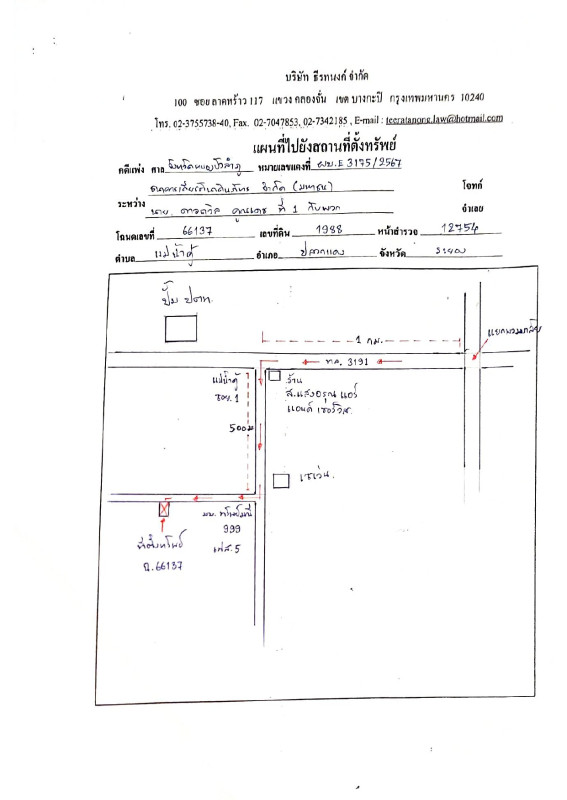 บริษัท ธีรทนงค์ จำกัด
100 ซอย ลาดพร้าว 117 แขวง คลองจั่น เขต บางกะปิ กรุงเทพมหานคร 10240
โทร. 02-3755738-40, Fax. 02-7047853, 02-7342185 , E-mail : teeratanong.law@hotmail.com
แผนที่ไปยังสถานที่ตั้งทรัพย์
คดีแพ่ง ศาล จังหวัดหนองบัวลำภู หมายเลขแดงที่ ผบ.E 3175/2567
ธนาคารเกียรตินาคินภัทร จำกัด (มหาชน) โจทก์
ระหว่าง
นาย ที่ 1 กับพวก จำเลย
โฉนดเลขที่ 66137 เลขที่ดิน 1988 หน้าสำรวจ 12754
ตำบล แม่น้ำคู้ อำเภอ ปลวกแดง จังหวัด ระยอง
ปั๊ม ปตท.
แยก
1 กม.
ทล. 3191
แม่น้ำคู้
ซอย.1
ร้าน
ส.แสงอรุณ แอร์
แอนด์ เซอร์วิส.
500ม
เซเว่น.
มบ.
999
เฟส.5
ที่ตั้งทรัพย์
ฉ.66137